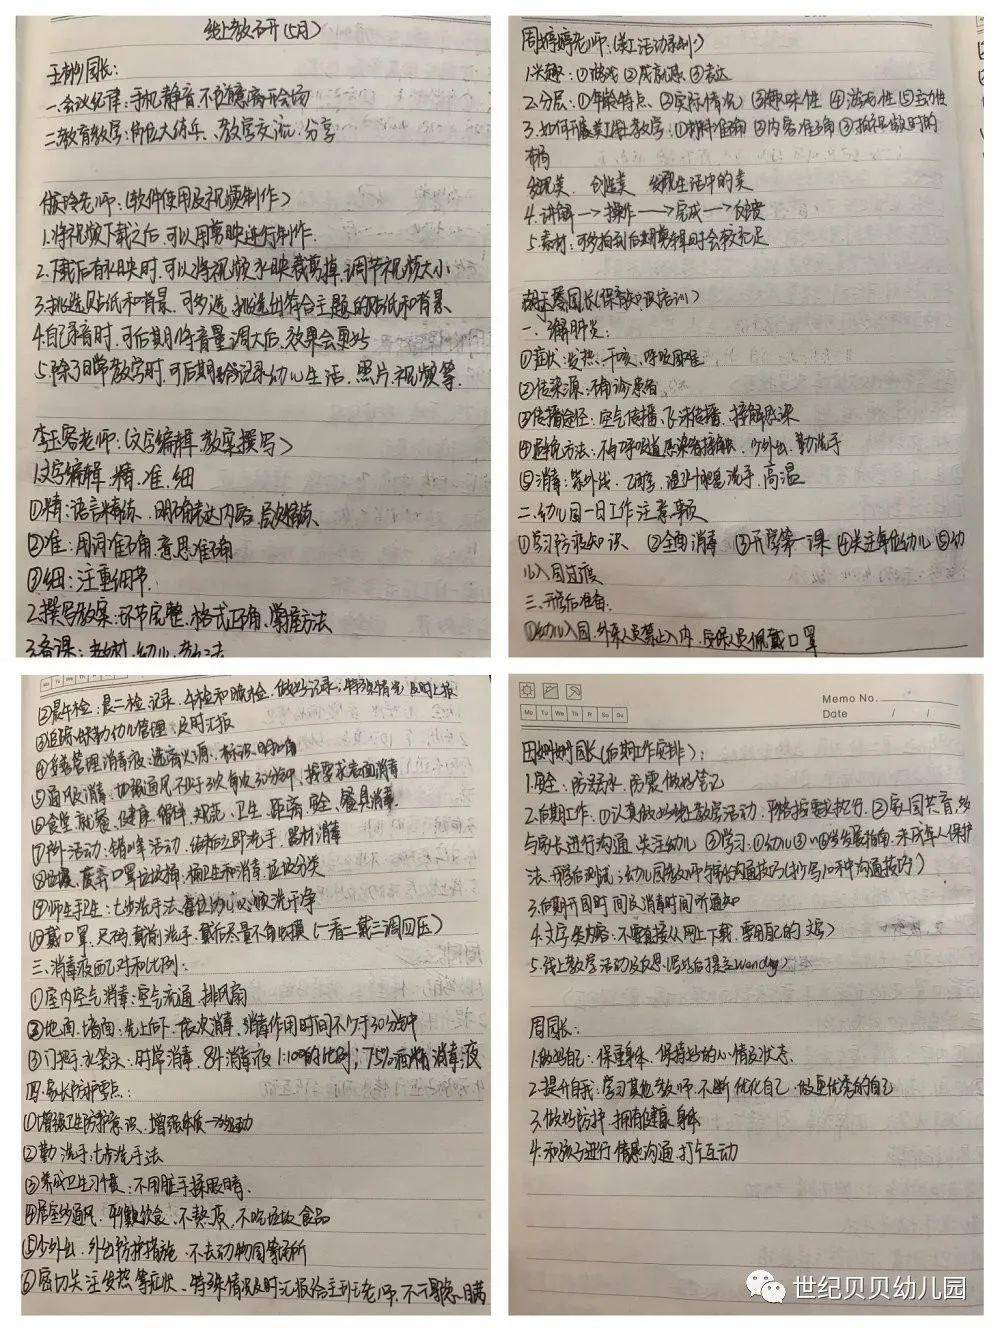 线上教研(5月)
园长:
一.会议纪律:手机静音.不随意离开会场
二.教育教学:岗位大练兵、教学交流.分享
老师:(软件使用及视频制作)
1.将视频下载之后,可以用剪映进行制作.
2.下载后有水映时,可以将视频水映裁剪掉,调节视频大小
3.挑选贴纸和背景.可多选,挑选出符合主题的贴纸和背景
4.自己录音时,可后期将音量调大后.效果会更好
5.除了日常教学时,可后期记录幼儿生活.照片.视频等.
李玉容老师:(文字编辑.教案撰写)
1.文字编辑:精.准.细
①精:语言精练.明确表达内容.层次精练
②准:用词准确.意思准确
③细:注重细节.
2.撰写教案:环节完整.格式正确.掌握方法
3.备课:教材.幼儿.教法
周婷婷老师:(美工活动系列)
1.兴趣:①游戏②成就感③表达
2.分层:①年龄特点.②实际情况③趣味性④游戏性⑤主动性
3.如何开展美工教学:①材料准确②内容准确③拍视频时的
布局
发现美.创造美.发现生活中的美
4.讲解→操作→完成→欣赏
5.素材:可多拍到后期剪辑时会较充足
园长(保育知识培训)
一.了解肺炎:
①症状:发热.干咳.呼吸困难
②传染源:确诊患者
③传播途径:空气传播.飞沫传播.接触感染
④避免方法:不与呼吸道感染者接触.少外出.勤洗手
⑤消毒:紫外线.乙醇.洗手.高温
二.幼儿园一日工作注意事项
①学习防疫知识 ②全面消毒 ③开学第一课④关注每位幼儿⑤幼
儿入园过度
三.开学后准备.
①幼儿入园.外来人员禁止入内.安保人员佩戴口罩
②晨午检:晨二检.记录.午检和晚检.做好记录;特殊情况及时上报
③追踪:缺勤幼儿管理.及时汇报
④专管理消毒液:远离火源.标识明确
⑤通风消毒:加强通风.不少于3次.每次30分钟.按要求表面消毒
⑥食堂就餐.健康.循环.规范.卫生.距离.安全.餐具消毒.
⑦户外活动:错峰活动.结束后立即洗手.器材消毒
⑧垃圾.废弃口罩垃圾桶.桶卫生和消毒.垃圾分类
⑨师生手卫生:七步洗手法.每位幼儿必须洗干净
⑩戴口罩.尺码.戴前洗手.戴后尽量不触摸(一看二戴三调四压)
三.消毒液配对和比例:
①室内空气消毒:空气流通.排风扇
②地面.墙面:先上后下.依次消毒.消毒作用时间不少于30分钟
③门把手.水笼头.时常消毒.84消毒液1:100的比例;75%酒精消毒液
四.家长防护要点:
①增强卫生防护意识、增强体质→运动
②勤洗手:七步洗手法
③养成卫生习惯:不用脏手揉眼睛.
④居室多通风.平衡饮食.不熬夜.不吃垃圾食品
⑤少外出.外出防护措施.不去动物园等场所
⑥密切关注发热等症状.特殊情况及时汇报给主班老师.不可隐瞒
Memo No.
Date / /
Mo Tu We Th Fr Sa Su
田园长(后期工作安排):
1.安全:防溺水.防震做好笔记
2.后期工作.①认真做好线上教学活动.严格按要求执行.②家园共育,多
与家长进行沟通.关注幼儿 ③学习:①幼儿②《3-6岁发展指南.未成年人保护
法.开学后测试;幼儿园教师与家长沟通技巧(抄写10种沟通技巧)
3.后期开园时间及消毒时间听通知
4.文字类内容:不要直接从网上下载.要用自己的文字)
5.线上教学活动及反思(写好后提交
周园长:
1.做好自己:保重身体.保持好的心情及状态.
2.提升自我:学习其他教师.不断优化自己.做更优秀的自己
3.做好防护.拥有健康身体
4.和孩子进行情感沟通.打卡互动
世纪贝贝幼儿园